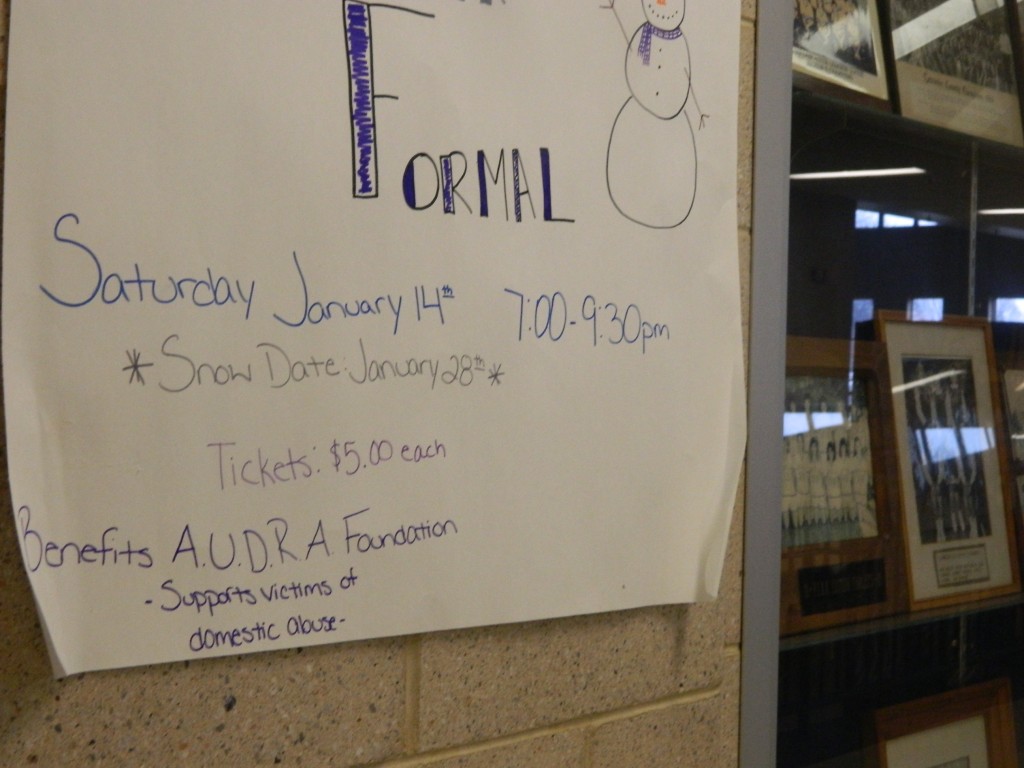 FORMAL
Saturday January 14th 7:00-9:30pm
* Snow Date: January 28th *
Tickets: $5.00 each
Benefits A.U.D.R.A. Foundation
- Supports victims of
domestic abuse-